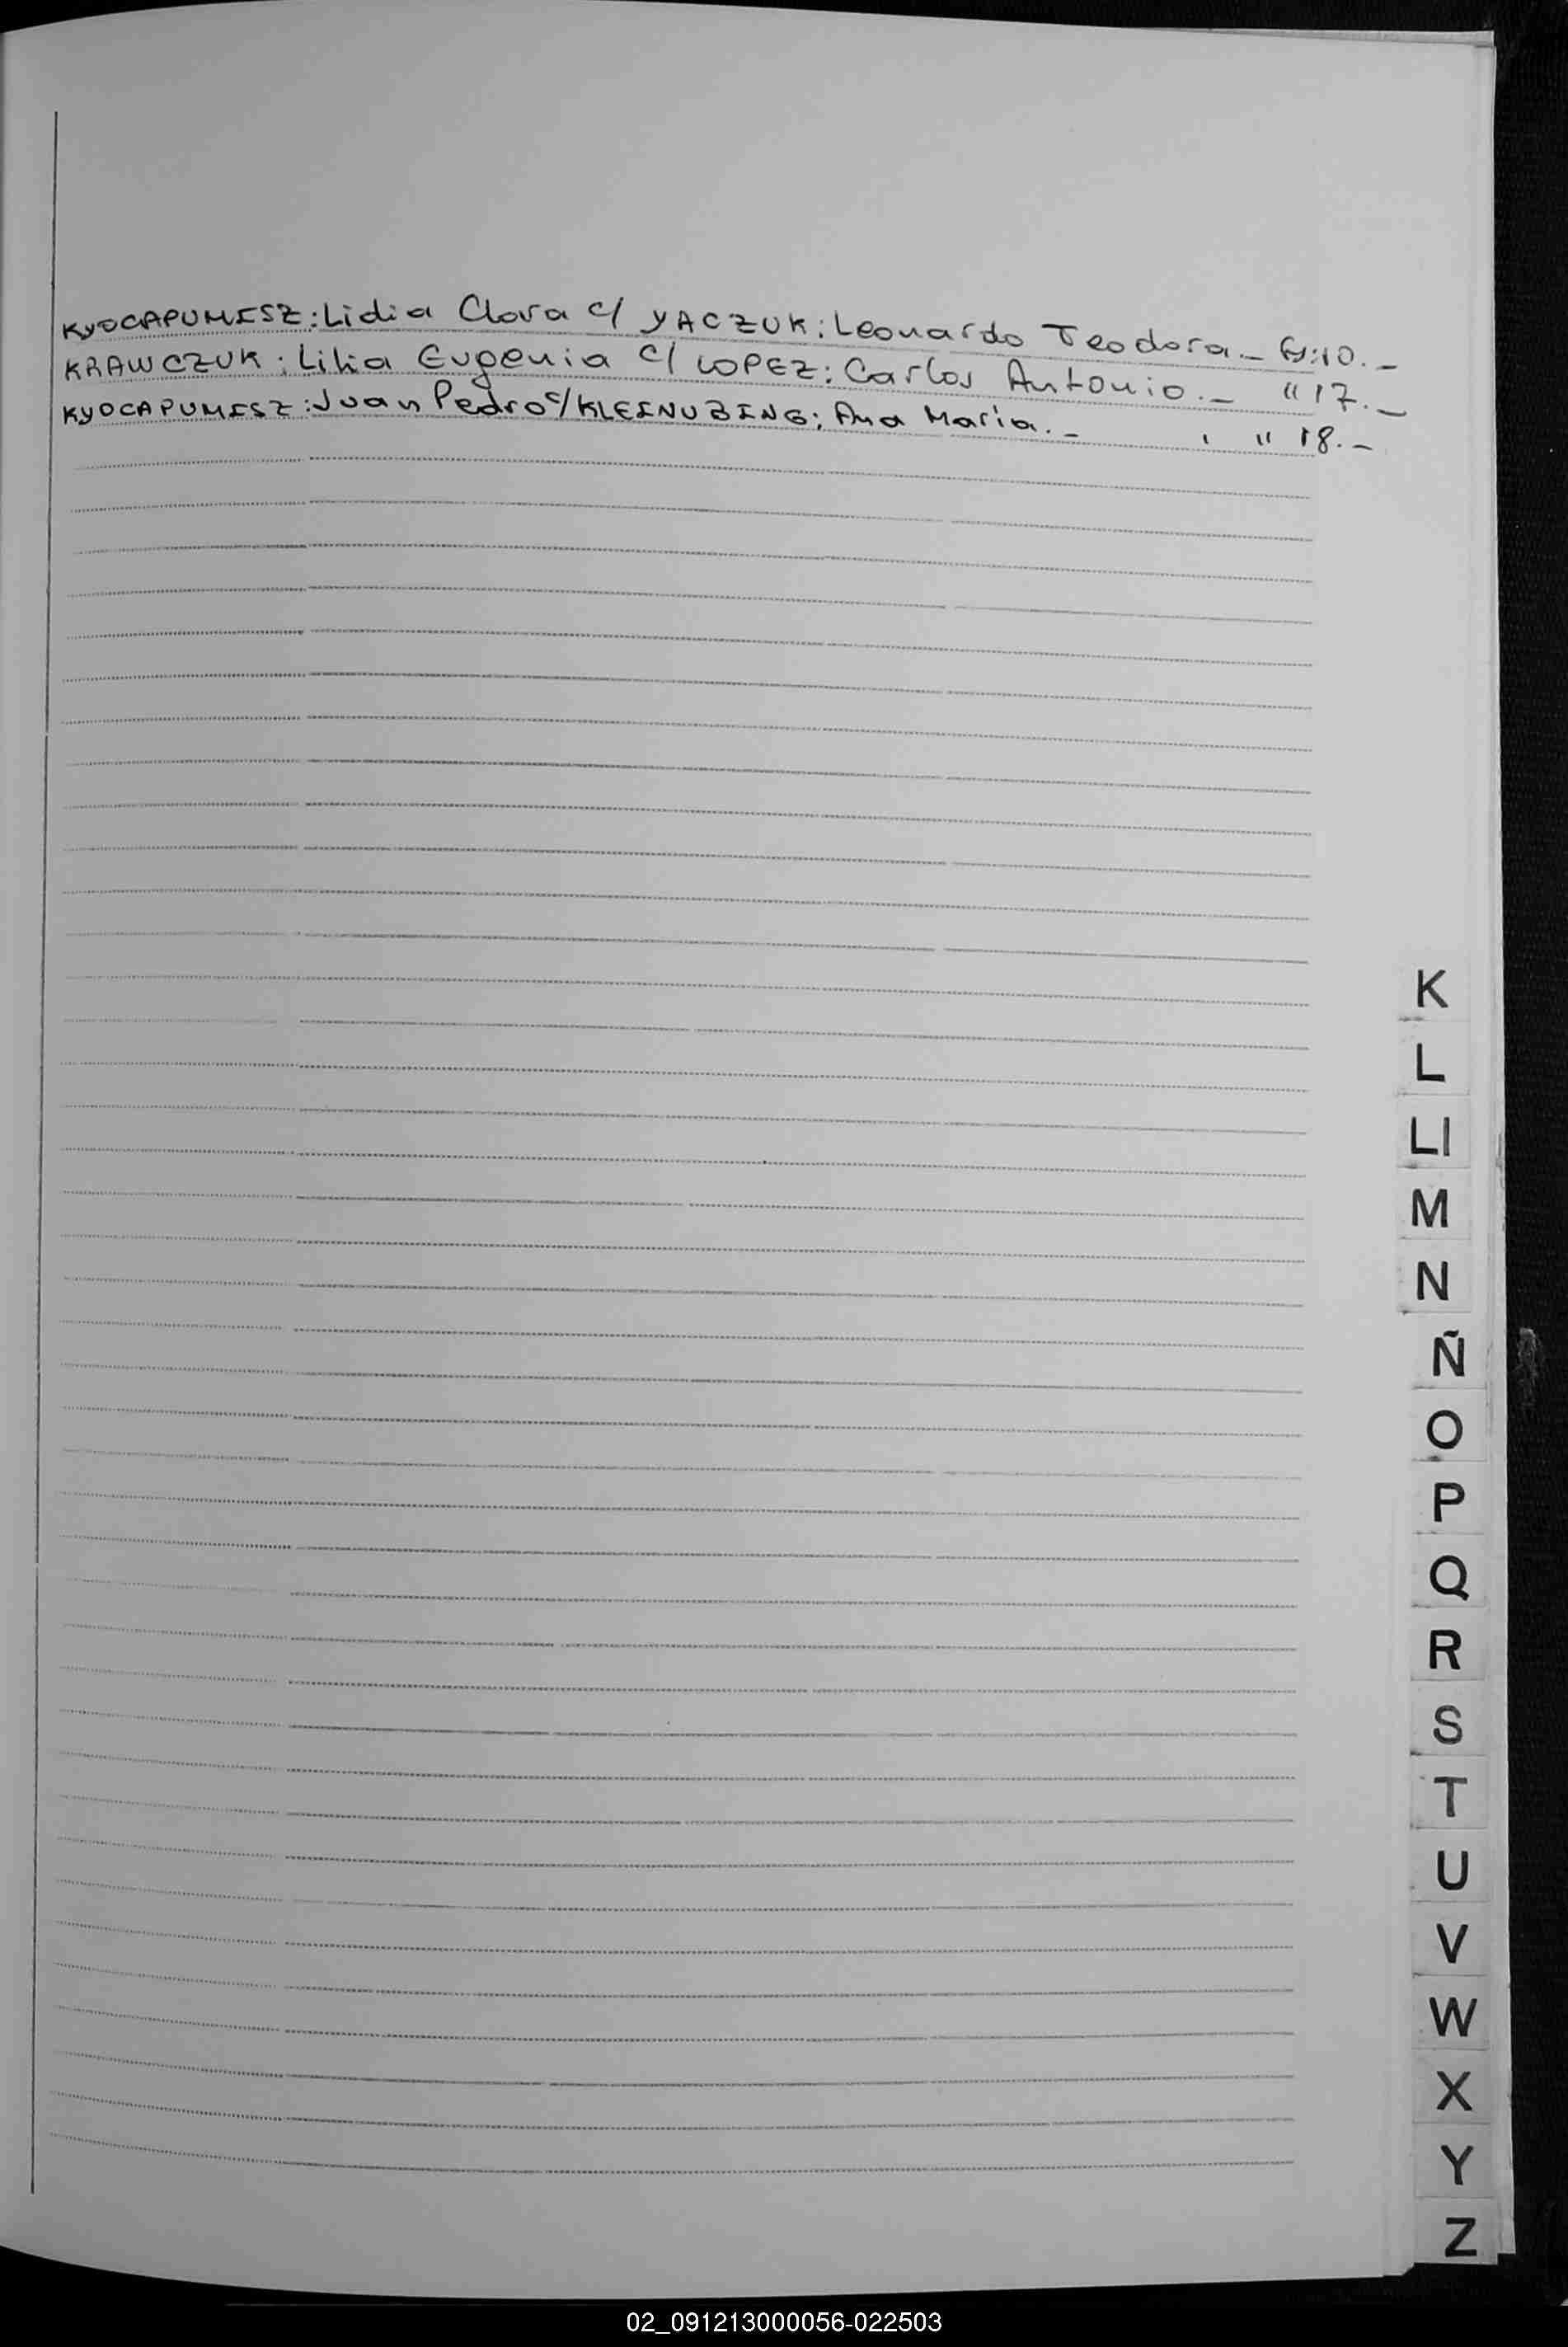 KYOCAPUMISZ: Lidia Clara c/ YACZUK: Leonardo Teodora._ Fº:10._
KRAWCZUK: Lilia Eugenia c/ LOPEZ: Carlos Antonio._ " 17._
KYOCAPUMISZ: Juan Pedro c/ KLEINUBING: Ana Maria._ " 18._
K
L
Ll
M
N
Ñ
O
P
Q
R
S
T
U
V
W
X
Y
Z
02_091213000056-022503